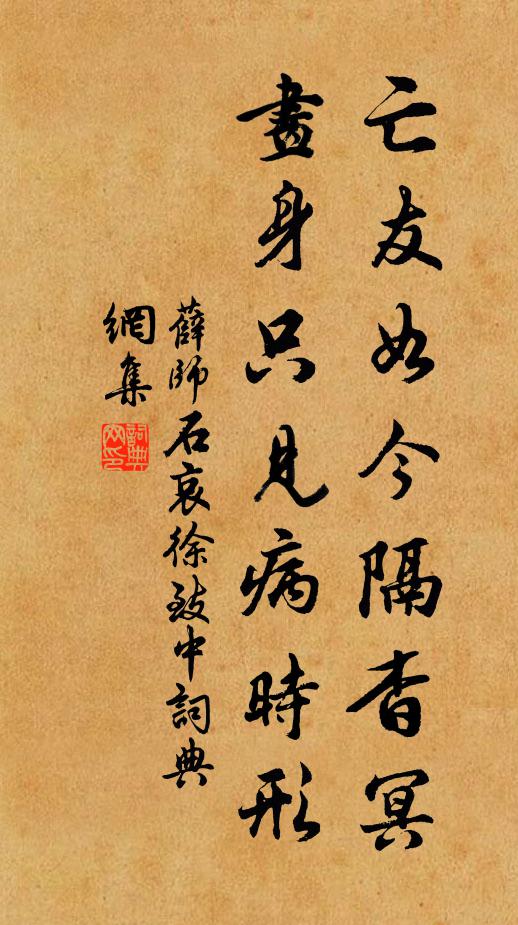 亡友如今隔杳冥
畫身只見病時形
薛師石哀徐致中詞典
網集
詞典
网印